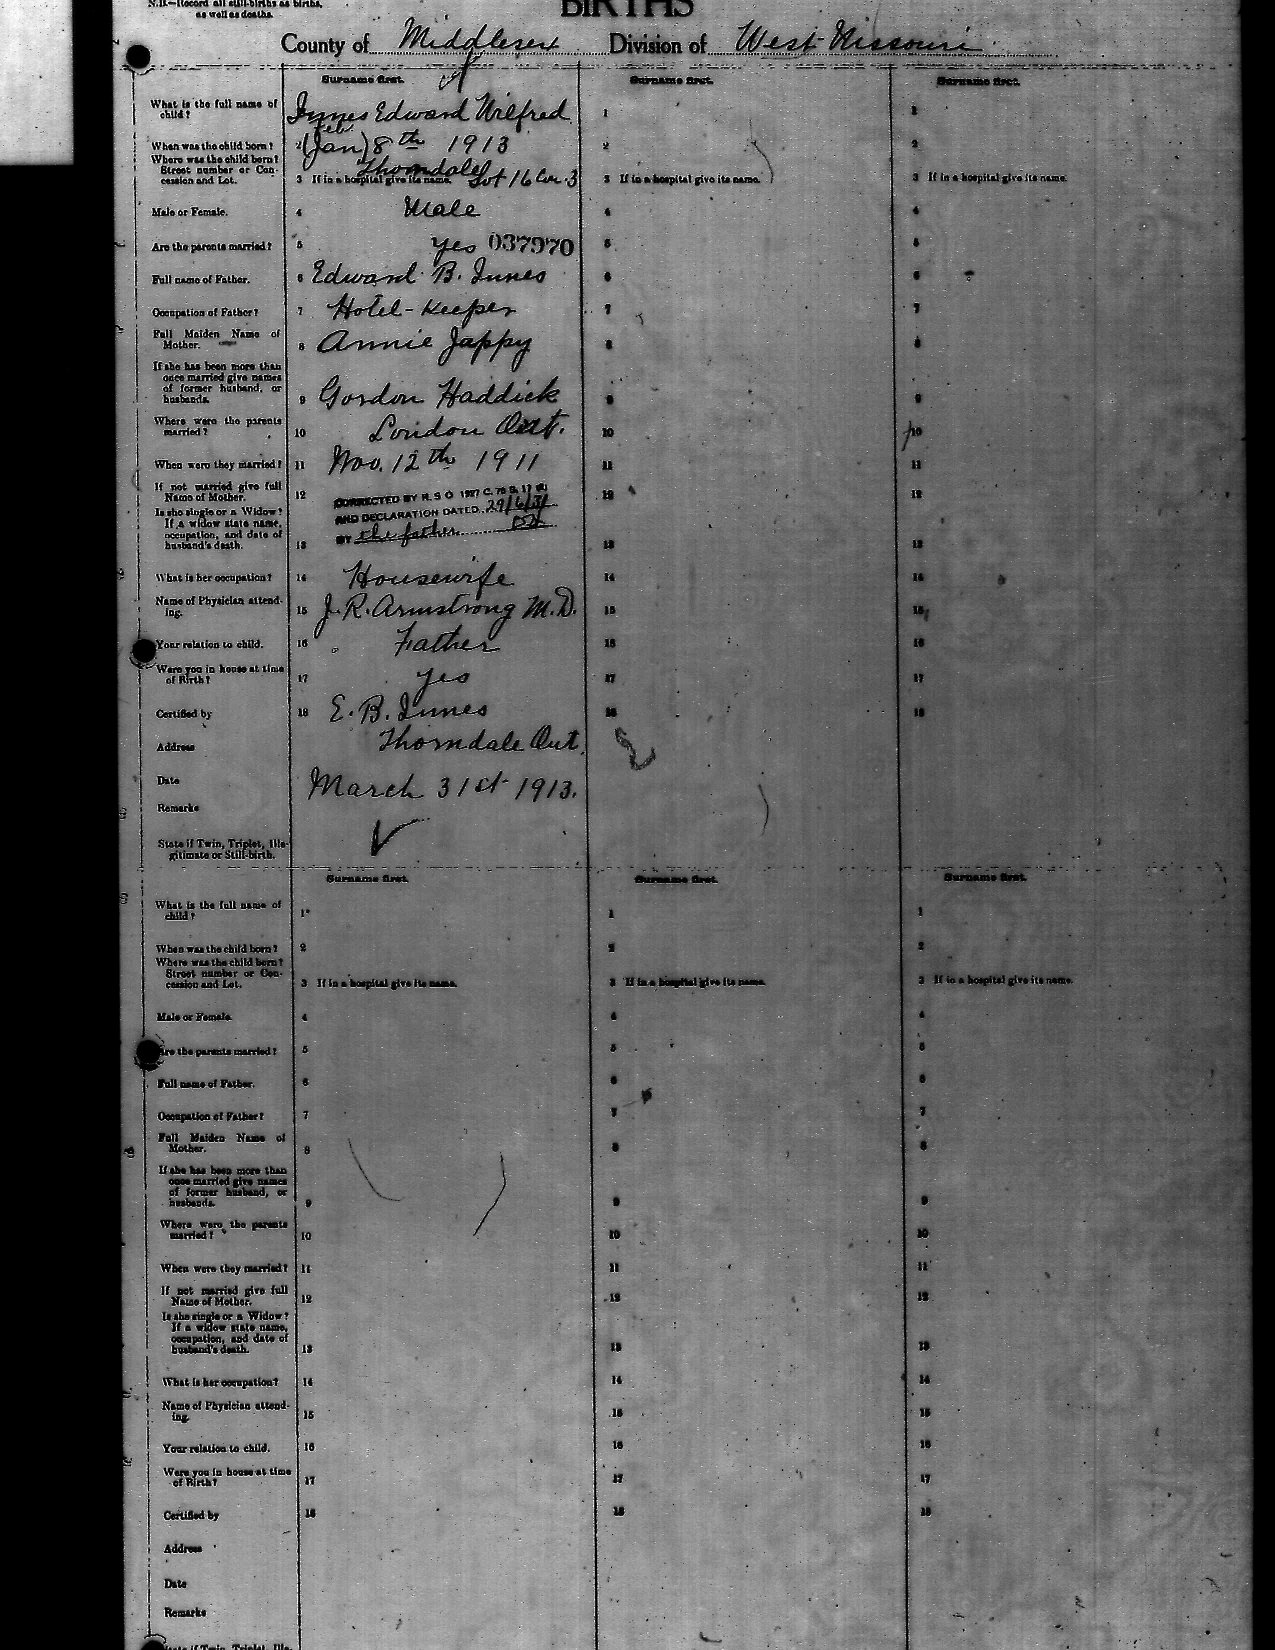 N.B.—Record all still-births as births,
as well as deaths.
BIRTHS
County of Middlesex Division of West Nissouri
Surname first. Surname first. Surname first.
What is the full name of
child? Innes Edward Wilfred 1 1
Feb.
When was the child born? 2 (Jan) 8th 1913 2 2
Where was the child born?
Street number or Con-
cession and Lot. 3 If in a hospital give its name. Thorndale Lot 16 Con. 3 3 If in a hospital give its name. 3 If in a hospital give its name.
Male or Female. 4 Male 4 4
Are the parents married? 5 Yes 037970 5 5
Full name of Father. 6 Edward B. Innes 6 6
Occupation of Father? 7 Hotel-Keeper 7 7
Full Maiden Name of
Mother. 8 Annie Jappy 8 8
If she has been more than
once married give names
of former husband, or
husbands. 9 Gordon Haddick 9 9
Where were the parents
married? 10 London Ont. 10 10
When were they married? 11 Nov. 12th 1911 11 11
If not married give full
Name of Mother. 12 12 12
CORRECTED BY R.S.O. 1927 C. 78 S. 17
AND DECLARATION DATED 29/6/31
BY the father
Is she single or a Widow?
If a widow state name,
occupation, and date of
husband's death. 13 13 13
What is her occupation? 14 Housewife 14 14
Name of Physician attend-
ing. 15 J. R. Armstrong M.D. 15 15
Your relation to child. 16 Father 16 16
Were you in house at time
of Birth? 17 Yes 17 17
Certified by 18 E. B. Innes 18 18
Address Thorndale Ont.
Date March 31st 1913.
Remarks
State if Twin, Triplet, Ille-
gitimate or Still-birth.
Surname first. Surname first. Surname first.
What is the full name of
child? 1 1 1
When was the child born? 2 2 2
Where was the child born?
Street number or Con-
cession and Lot. 3 If in a hospital give its name. 3 If in a hospital give its name. 3 If in a hospital give its name.
Male or Female. 4 4 4
Are the parents married? 5 5 5
Full name of Father. 6 6 6
Occupation of Father? 7 7 7
Full Maiden Name of
Mother. 8 8 8
If she has been more than
once married give names
of former husband, or
husbands. 9 9 9
Where were the parents
married? 10 10 10
When were they married? 11 11 11
If not married give full
Name of Mother. 12 12 12
Is she single or a Widow?
If a widow state name,
occupation, and date of
husband's death. 13 13 13
What is her occupation? 14 14 14
Name of Physician attend-
ing. 15 15 15
Your relation to child. 16 16 16
Were you in house at time
of Birth? 17 17 17
Certified by 18 18 18
Address
Date
Remarks
State if Twin, Triplet, Ille-